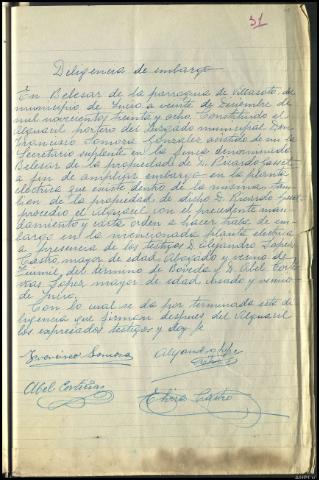 51
Deligencia de embargo
En Belesar de la parroquia de Villasote del
municipio de Incio a veinte de Diciembre de
mil novecientos treinta y ocho. Constituido el
alguacil portero del Juzgado municipal Don
Francisco Somoza González asistido de mi el
Secretario suplente en la finca denominada
Belesar de la propiedad de D. Ricardo Gasset
a fin de ampliar embargo en la planta
electrica que existe dentro de la misma tam-
bien de la propiedad de dicho D. Ricardo
procedio el Alguacil con el precedente man-
damiento y carta orden a hacer traba de em-
bargo en la mencionada planta electrica
a presencia de los testigos D. Alejandro Lopez
Castro mayor de edad Abogado y vecino de
del termino de Boveda y D. Abel
Lopez mayor de edad, casado y vecino
de Incio.
Con lo cual se da por terminada esta di-
ligencia que firman despues del Alguacil
los expresados testigos y doy fe
Francisco Somoza Alejandro Lopez
Abel Castro